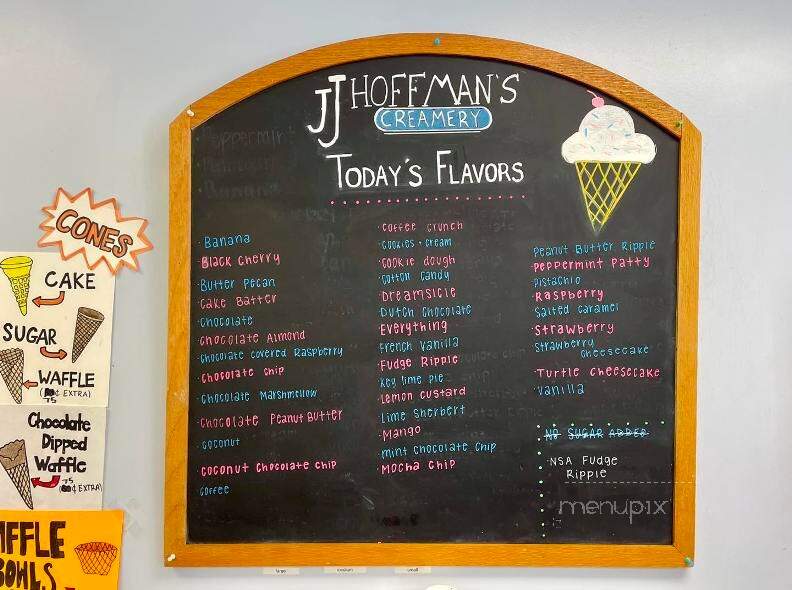 JJ HOFFMAN'S
CREAMERY
TODAY'S FLAVORS
Peppermint
Banana
·Banana
·Black Cherry
·Butter Pecan
·Cake Batter
·Chocolate
·Chocolate Almond
·Chocolate covered Raspberry
·Chocolate Chip
·Chocolate Marshmellow
·Chocolate Peanut Butter
·Coconut
·Coconut Chocolate Chip
Coffee
·Coffee Crunch
·Cookies + Cream
·Cookie dough
·Cotton Candy
·Dreamsicle
·Dutch Chocolate
Everything
·French Vanilla
·Fudge Ripple
·Key lime pie
·Lemon custard
·Lime Sherbert
·Mango
·mint chocolate chip
·Mocha Chip
Peanut Butter Ripple
·Peppermint Patty
Pistachio
·Raspberry
Salted Caramel
·Strawberry
Strawberry
Cheesecake
·Turtle Cheesecake
·Vanilla
NO SUGAR ADDED
·NSA Fudge
Ripple
menupix
CONES
CAKE
SUGAR
WAFFLE
(¢ EXTRA)
75
Chocolate
Dipped
Waffle
75
(¢ EXTRA)
AFFLE
BOWLS
large
medium
small